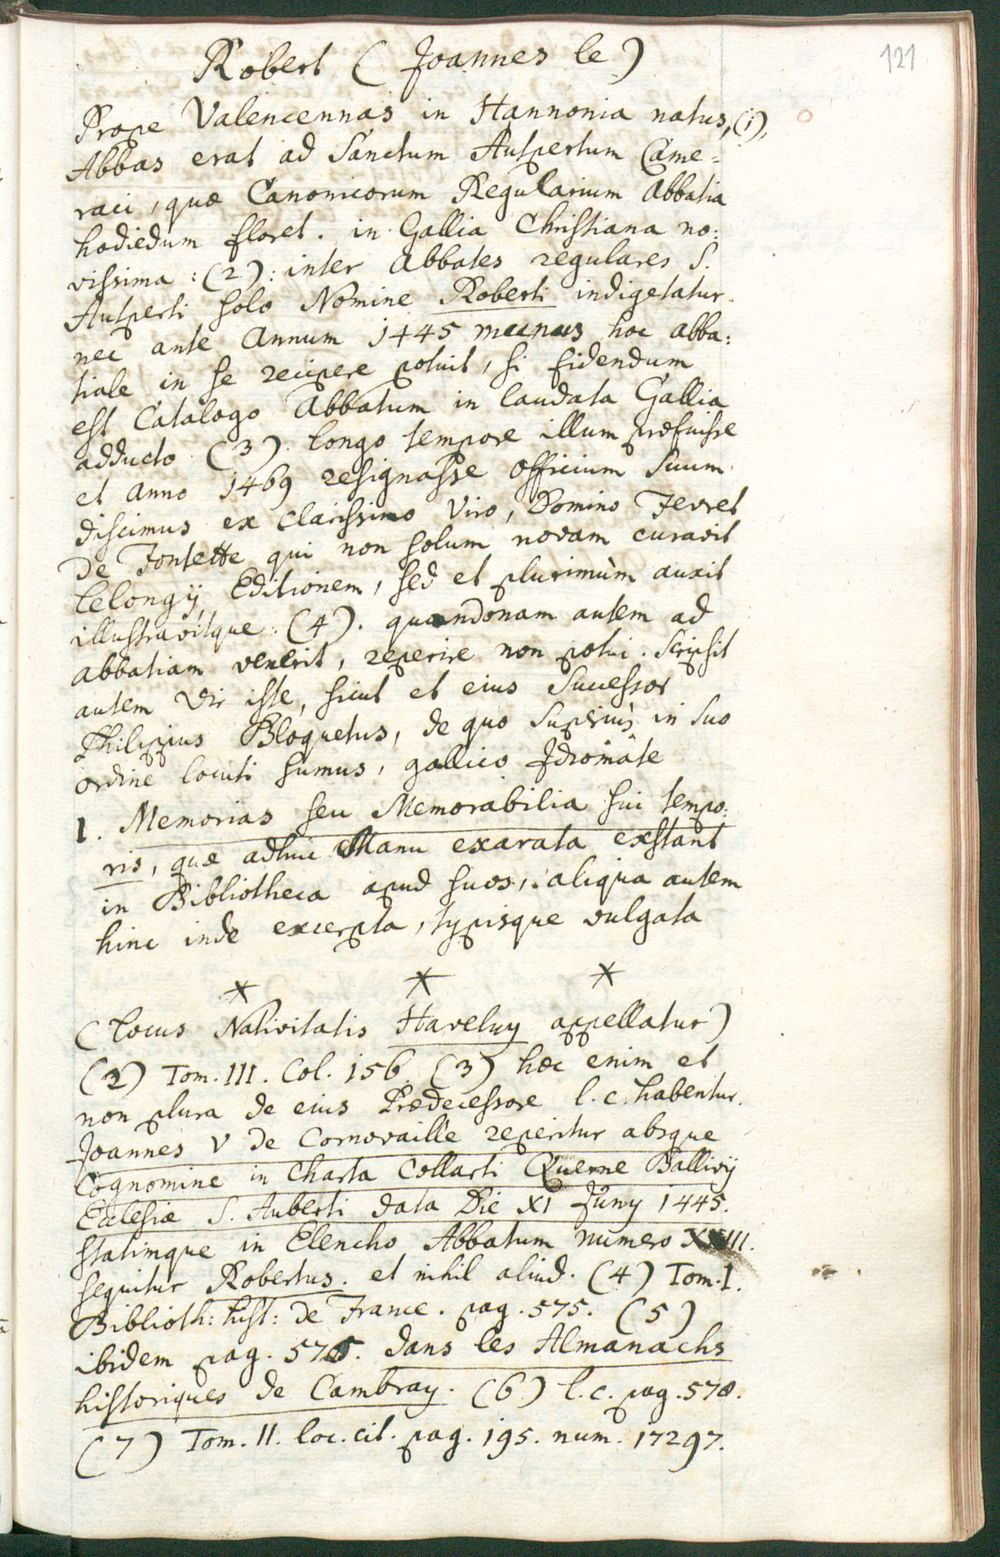 121
Robert (Joannes le)
Prope Valencennas in Hannonia natus, (1),
Abbas erat ad Sanctum Autpertum Came=
raci, quæ Canonicorum Regularium Abbatia
hodiedum floret. in Gallia Christiana no:
vissima: (2): inter Abbates regulares S.
Autperti solo Nomine Roberti indigetatur.
nec ante Annum 1445 munus hoc abba:
tiale in se recipere potuit, si fidendum
est Catalogo Abbatum in laudata Gallia
adducto (3). longo tempore illum præfuisse
et Anno 1469 resignasse officium suum
discimus ex clarissimo Viro, Domino Fevret
De Fontette qui non solum novam curavit
Lelongij Editionem, sed et plurimùm auxit
illustravitque. (4). quandonam autem ad
abbatiam venerit, reperire non potui. Scripsit
autem Vir iste, sicut et eius Successor
Philippus Bloquetus, de quo Superius in suo
ordine locuti sumus, gallico Idiomate
1. Memorias seu Memorabilia sui tempo:
ris, quæ adhuc Manu exarata exstant
in Bibliotheca apud suos, aliqua autem
hinc inde excerpta, typisque vulgata
* * *
(locus Nativitatis Haveluy appellatur)
(2) Tom. III. Col. 156. (3) hæc enim et
non plura de eius Prædecessore l. c. habentur.
Joannes V de Cornovaille reperitur absque
Cognomine in Charta Collarti Querne Ballivij
Ecclesiæ S. Auberti data Die XI Juny 1445.
statimque in Elencho Abbatum numero III.
sequitur Robertus. et nihil aliud. (4) Tom. I.
Biblioth: hist: de France. pag. 575. (5)
ibidem pag. 575. dans les Almanachs
historiques de Cambray. (6) l. c. pag. 578.
(7) Tom. II. loc. cit. pag. 195. num. 17297.